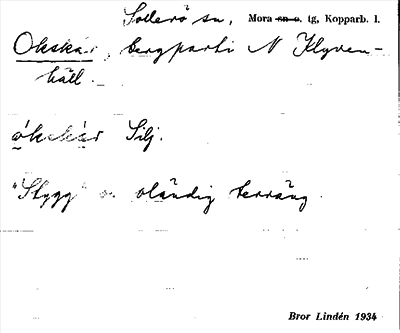 Sollerö sn, Mora sn o. tg, Kopparb. l.
Okskár, bergparti N Klyven-
häll.
ókskár Silj.
"Stygg" o. oländig terräng.
Bror Lindén 1934